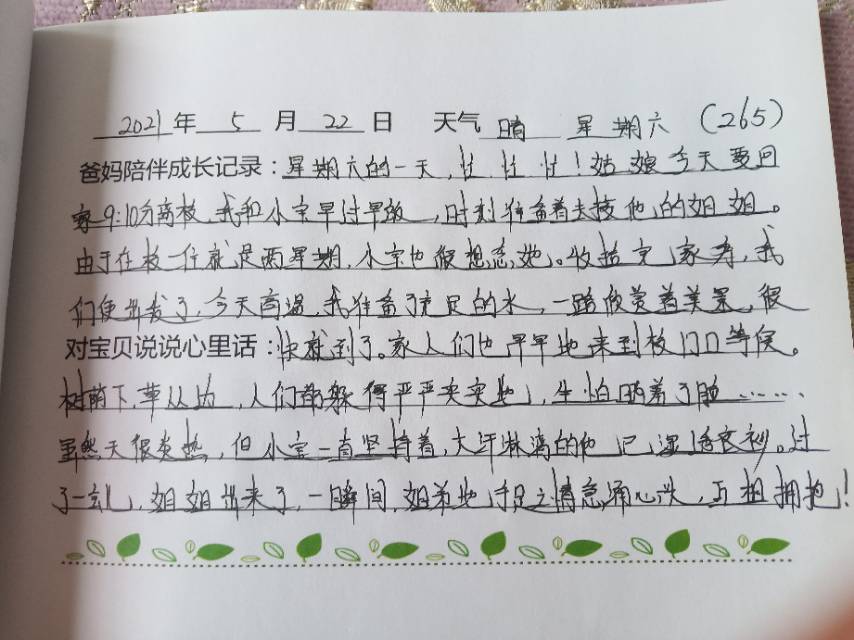 2021年 5 月 22 日 天气 晴 星期六 (265)
爸妈陪伴成长记录：星期六的一天，忙忙忙！姑娘今天要回
家9:10分离校，我和小宝早过早饭，时刻准备着去接他的姐姐。
由于在校一住就是两星期，小宝也很想念她。收拾完家务，我
们便出发了，今天高温，我准备了充足的水，一路欣赏着美景，很
对宝贝说说心里话：快就到了。家人们也早早地来到校门口等候。
树荫下，草丛边，人们都躲得严严实实地，生怕晒着了脸……
虽然天很炎热，但小宝一直坚持着，大汗淋漓的他已湿透衣衫。过
了一会儿，姐姐出来了，一瞬间，姐弟地手足之情急涌心头，互相拥抱！